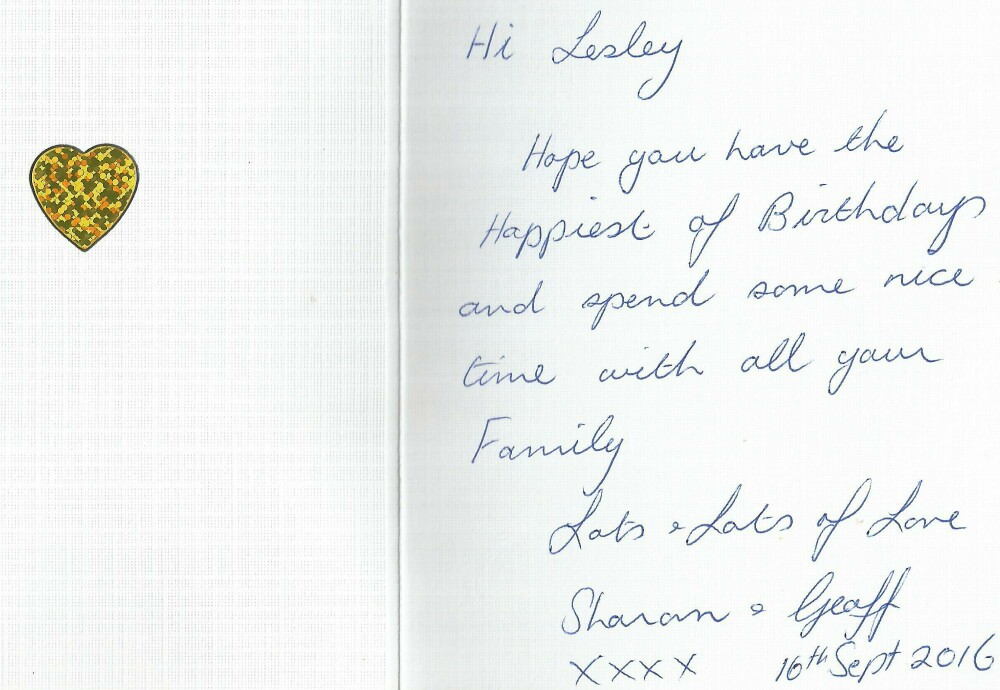 Hi Lesley
Hope you have the
Happiest of Birthdays
and spend some nice
time with all your
Family
Lots & Lots of Love
Sharon & Geoff
XXXX 16th Sept 2016